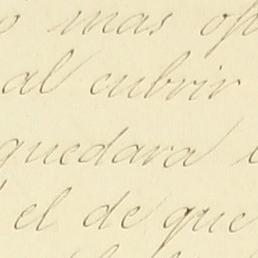 o mas op
al cubrir
quedara
el de que